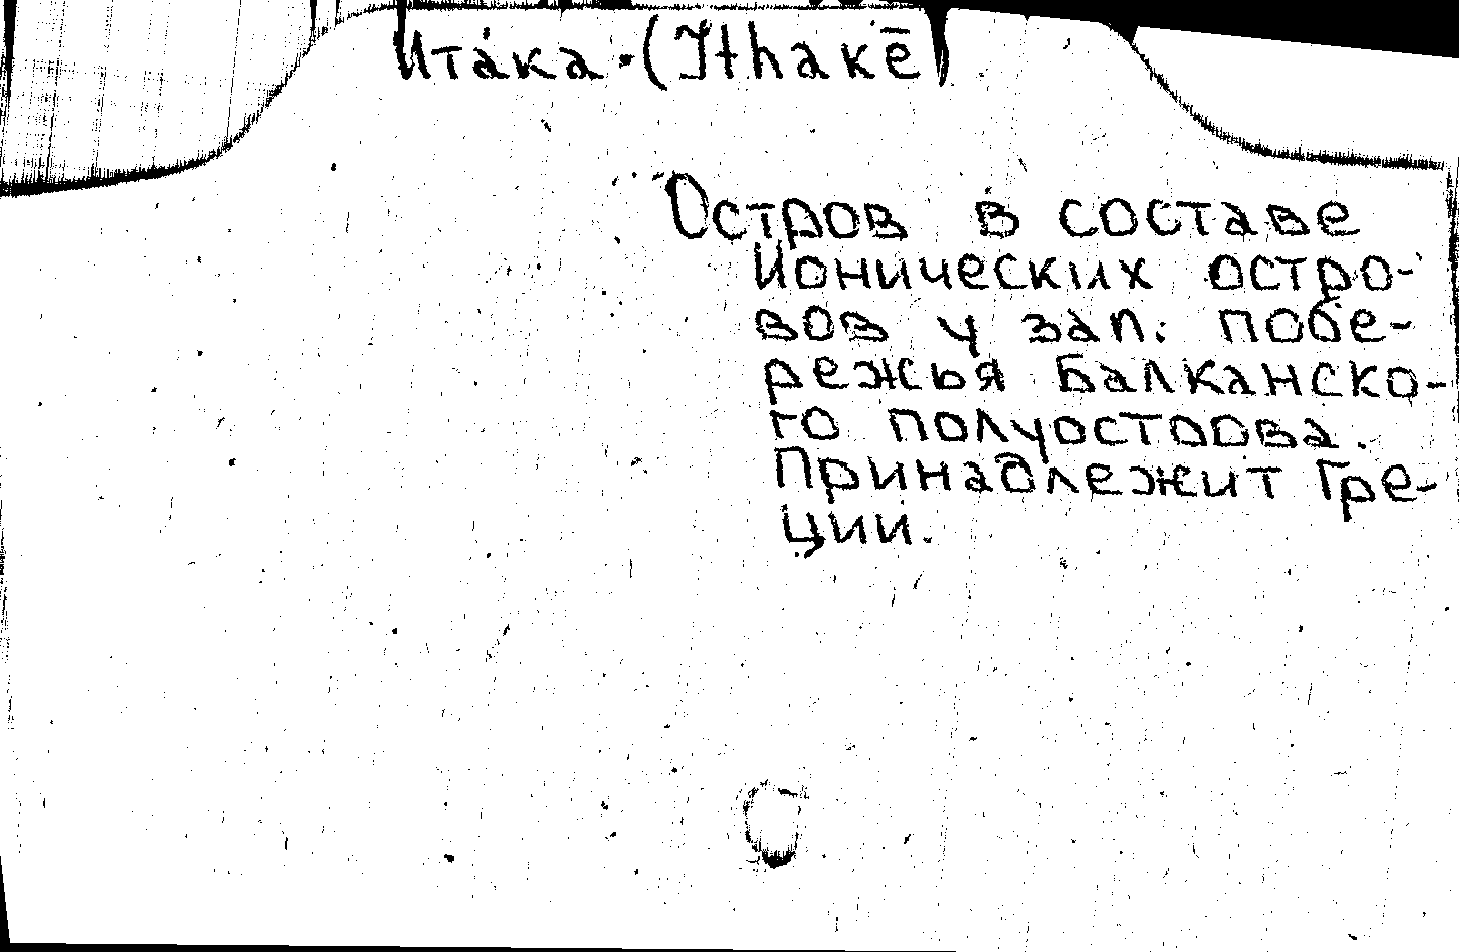 Ита́ка (Ithakē)
Остров в составе
Ионических остро-
вов у зап. побе-
режья Балканско-
го полуострова.
Принадлежит Гре-
ции.